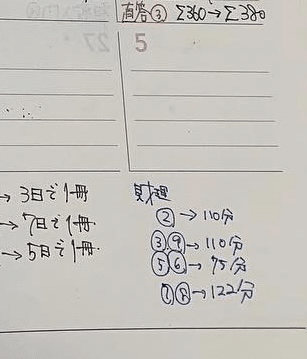 直答③ Σ360→Σ380
27 5
→ 3日で1冊
→ 7日で1冊
→ 5日で1冊
財理
②→110分
③⑨→110分
⑤⑥→75分
①⑧→122分